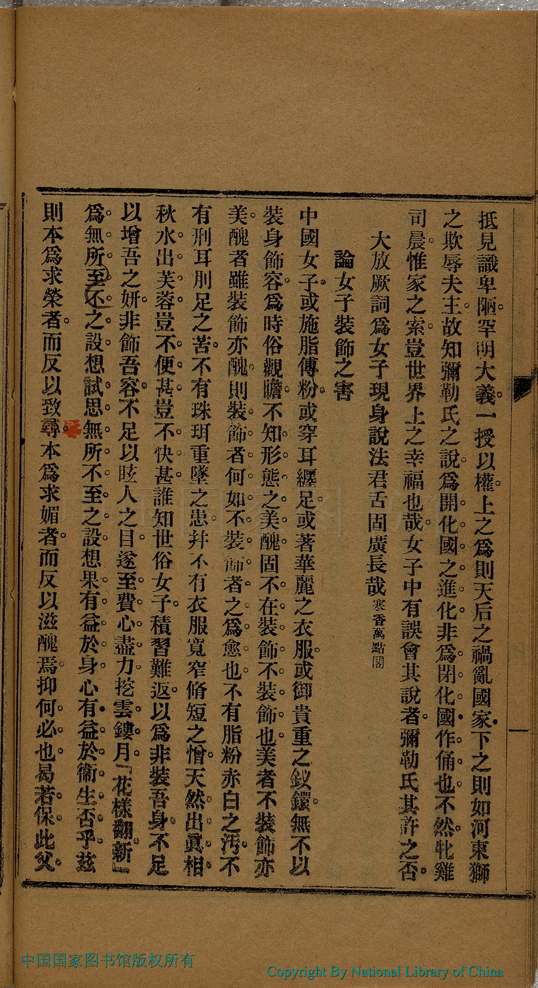 抵見識卑陋罕明大義一授以權上之爲則天后之禍亂國家下之則如河東獅
之欺辱夫主故知彌勒氏之說爲開化國之進化非爲閉化國作俑也不然牝雞
司晨惟家之索豈世界上之幸福也哉女子中有誤會其說者彌勒氏其許之否
大放厥詞爲女子現身說法君舌固廣長哉寒香萬點閣
論女子裝飾之害
中國女子或施脂傅粉或穿耳纏足或著華麗之衣服或御貴重之釵鐶無不以
裝身飾容爲時俗觀瞻不知形態之美醜固不在裝飾不裝飾也美者不裝飾亦
美醜者雖裝飾亦醜則裝飾者何如不裝飾者之爲愈也不有脂粉赤白之汚不
有刑耳刖足之苦不有珠珥重墜之患幷不有衣服寬窄脩短之憎天然出眞相
秋水出芙蓉豈不便甚豈不快甚誰知世俗女子積習難返以爲非裝吾身不足
以增吾之妍非飾吾容不足以眩人之目遂至費心盡力挖雲鏤月「花樣翻新」
爲無所至不之設想試思無所不至之設想果有益於身心有益於衞生否乎茲
則本爲求榮者而反以致辱本爲求媚者而反以滋醜焉抑何必也曷若保此父
中国国家图书馆版权所有
Copyright By National Library of China